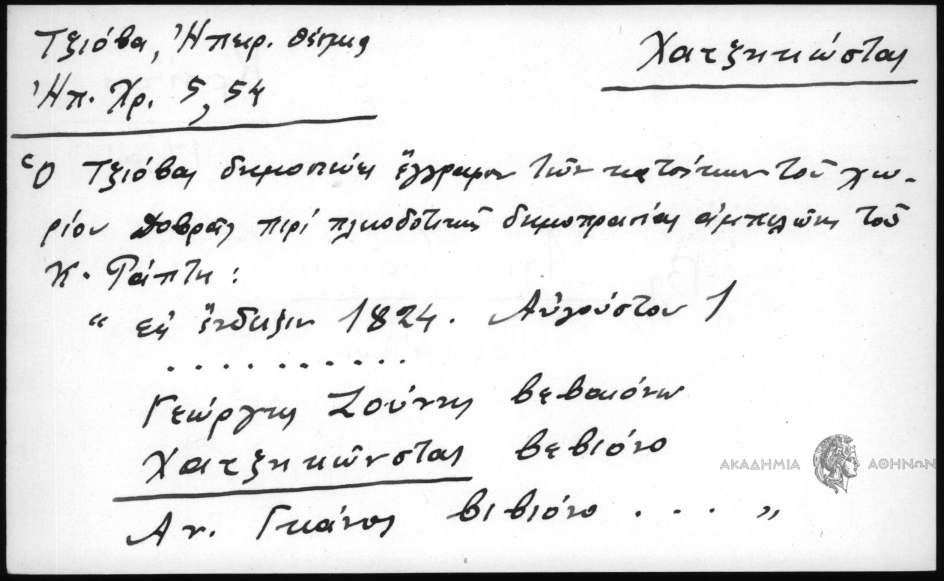 Τζιόβα, Ἠπειρ. θέμις
Χατζηκώστας
Ἠπ. Χρ. 5, 54
Ὁ Τζιόβας δημοσιεύει ἔγγραφον τῶν κατοίκων τοῦ χω-
ρίου Δοβρᾶς περὶ πλειοδοτικῆς δημοπρασίας ἀμπελῶνος τοῦ
Κ. Ράπτη:
" εἰς ἔνδειξιν 1824. Αὐγούστου 1
. . . . . . . . . . .
Γεώργης Ζούνης βεβαιόνω
Χατζηκῶνστας βεβιόνο
Αν. Γκάνος βεβιόνο . . . "
ΑΚΑΔΗΜΙΑ ΑΘΗΝΩΝ